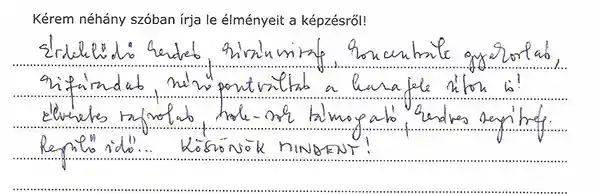 Kérem néhány szóban írja le élményeit a képzésről!
Érdeklődő kezdet, kíváncsiság, koncentrált gyakorlás,
kifáradás, nézőpontváltás a hazafele úton is!
Élvezetes rajzolás, sok-sok támogató, kedves segítség.
Repülő idő... KÖSZÖNÖK MINDENT!